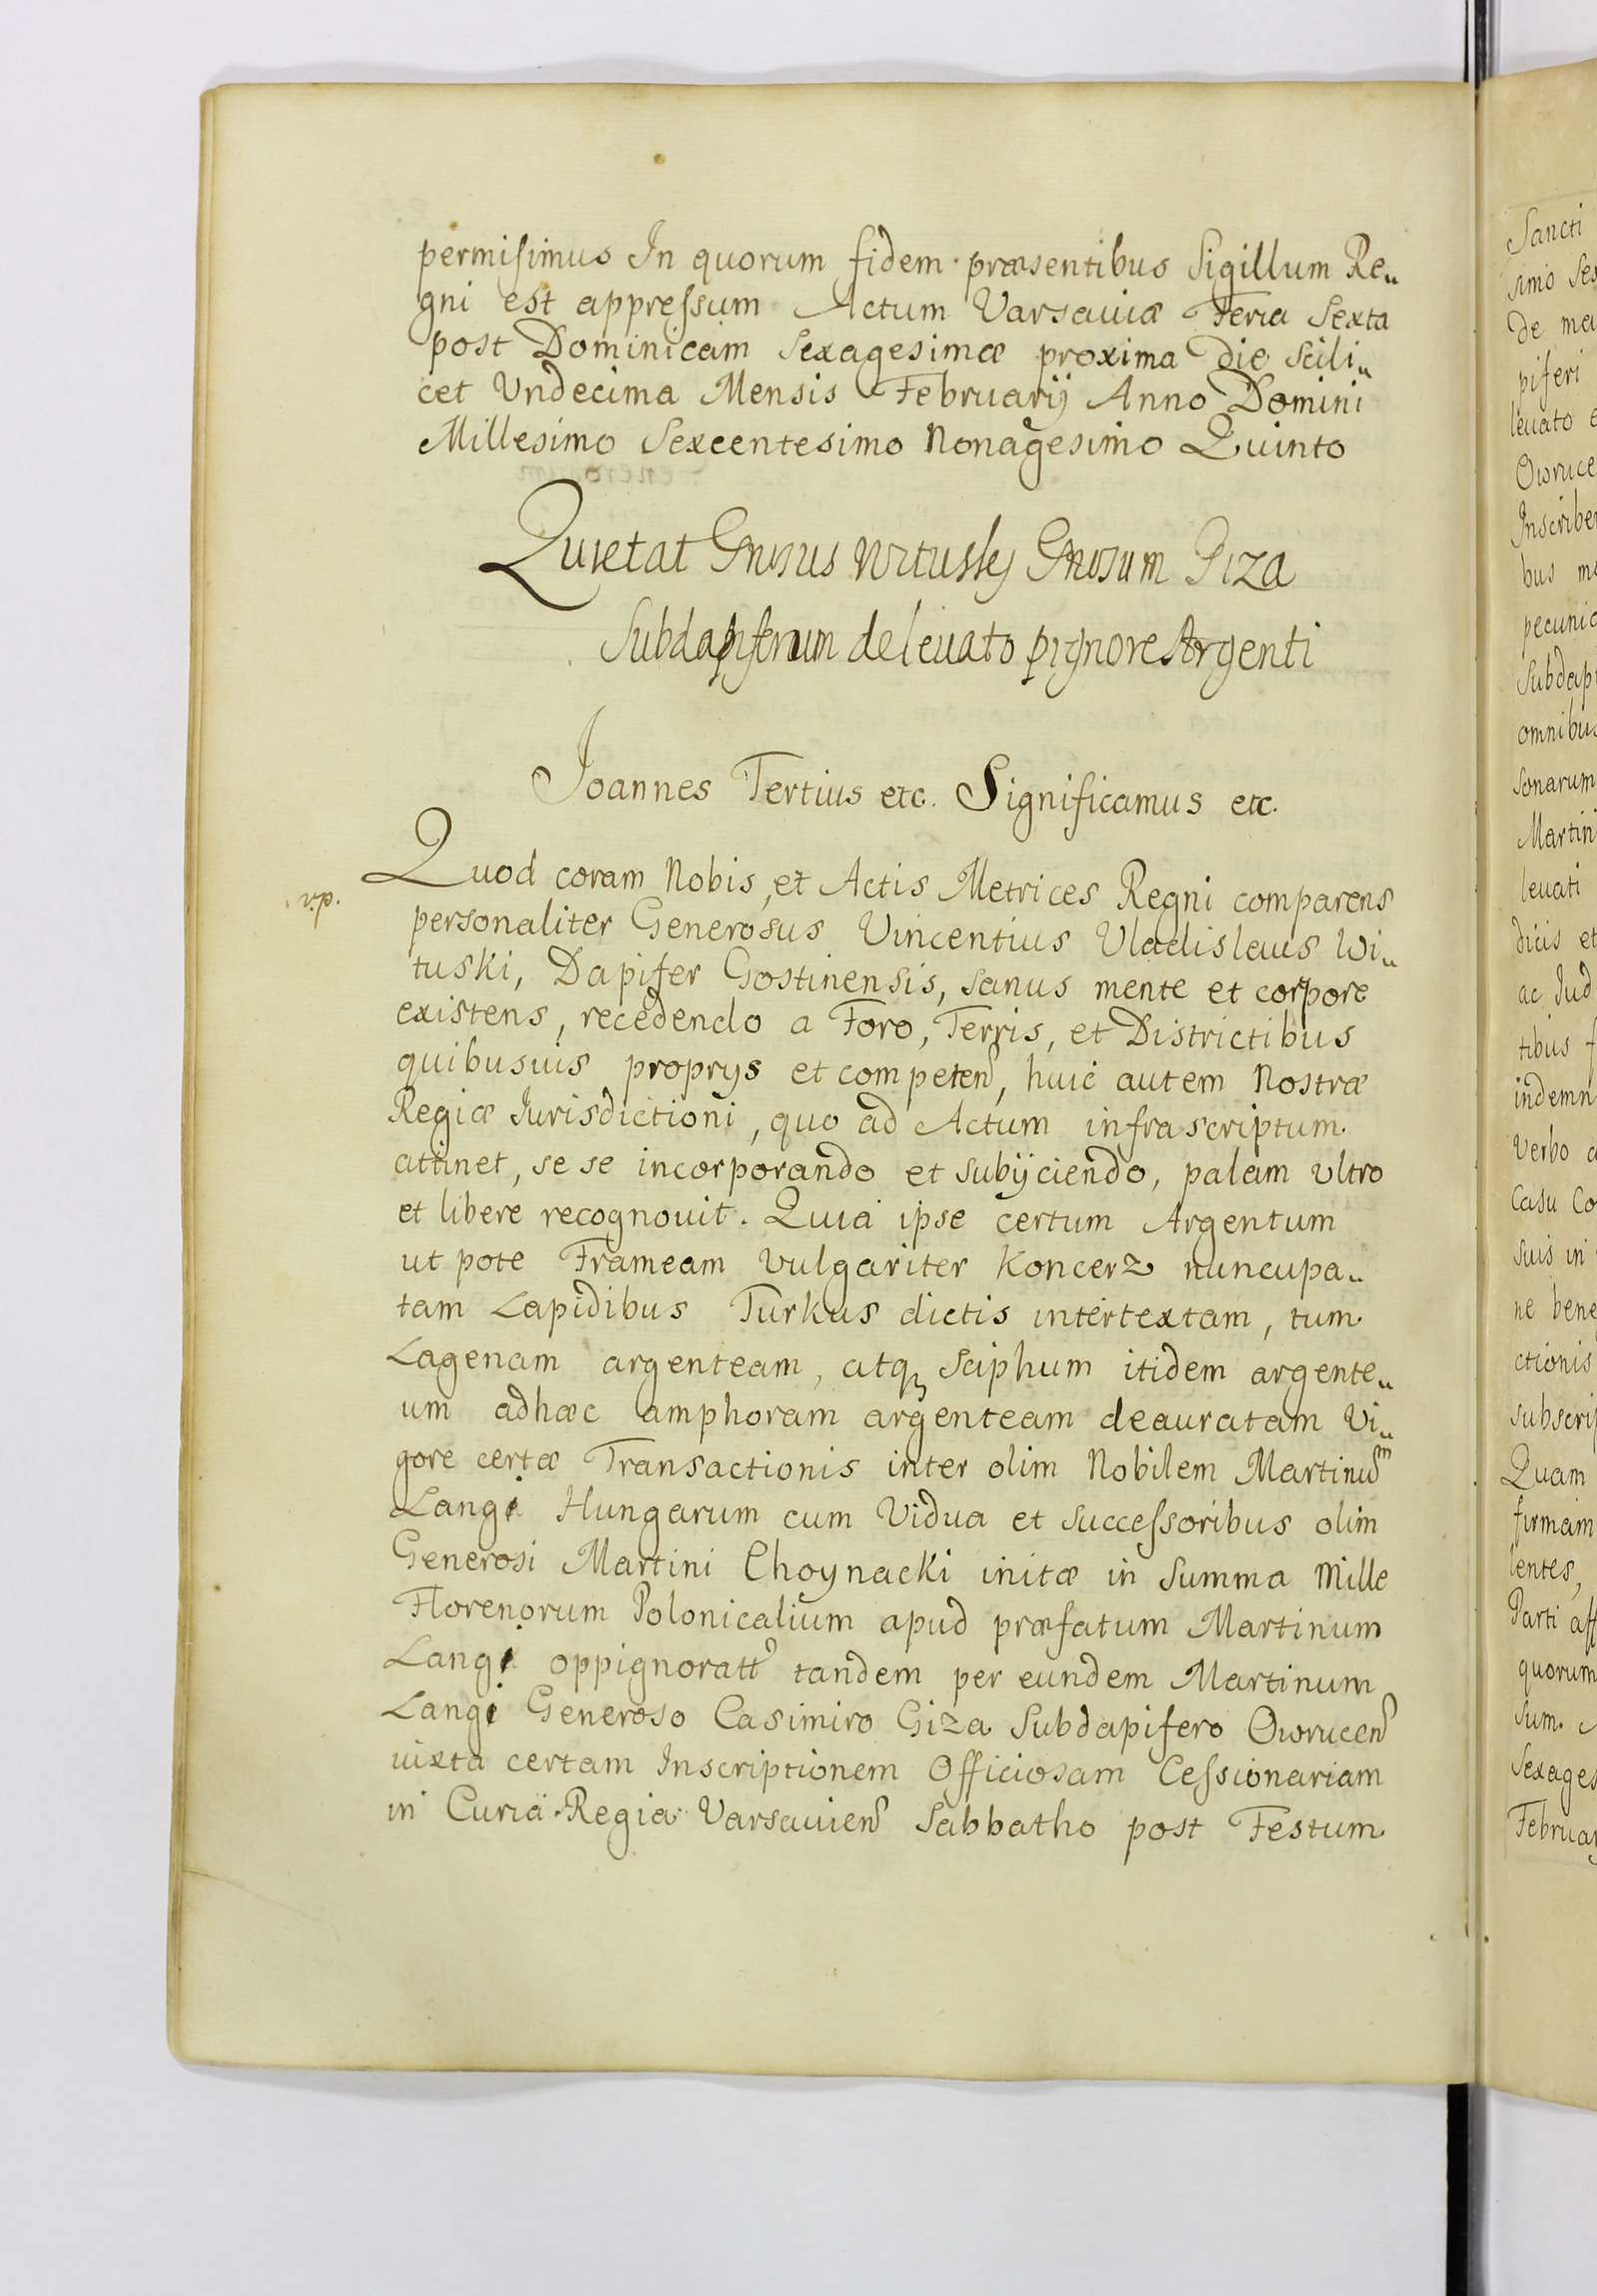 permisimus In quorum fidem præsentibus Sigillum Re„
gni est appressum Actum Varsauiæ Feria Sexta
post Dominicam Sexagesimæ proxima Die Scili„
cet Undecima Mensis Februarij Anno Domini
Millesimo Sexcentesimo Nonagesimo Quinto
Quietat Gnosus Wituskj Gnosum Giza
Subdapiferum de leuato pignore Argenti
Joannes Tertius etc. Significamus etc.
Quod coram Nobis, et Actis Metrices Regni comparens
personaliter Generosus Vincentius Vladislaus Wi„
tuski, Dapifer Gostinensis, sanus mente et corpore
existens, recedendo a Foro, Terris, et Districtibus
quibusuis proprys et competen, huic autem Nostræ
Regiæ Jurisdictioni, quo ad Actum infrascriptum
attinet, se se incorporando et subijciendo, palam vltro
et libere recognouit. Quia ipse certum Argentum
ut pote Frameam vulgariter Koncerz nuncupa„
tam Lapidibus Turkus dictis intertextam, tum
Lagenam argenteam, atq Sciphum itidem argente„
um adhæc amphoram argenteam deauratam Vi„
gore certæ Transactionis inter olim Nobilem Martinum
Langi Hungarum cum Vidua et Successoribus olim
Generosi Martini Choynacki initæ in Summa Mille
Florenorum Polonicalium apud præfatum Martinum
Langi oppignoratt tandem per eundem Martinum
Langi Generoso Casimiro Giza Subdapifero Owrucen
iuxta certam Inscriptionem Officiosam Cessionariam
in Curia Regia Varsauien Sabbatho post Festum
Sancti
simo Ses
de me
piferi
leuato e
Owruce
Inscribe
bus m
pecuni
Subdapi
omnibus
sonarum
Martin
leuati
dicis et
ac Jud
tibus f
indemn
Verbo
Casu Co
suis in
ne bene
ctionis
subscrip
Quam
firmam
lentes,
Parti aff
quorum
sum.
Sexages
Februar